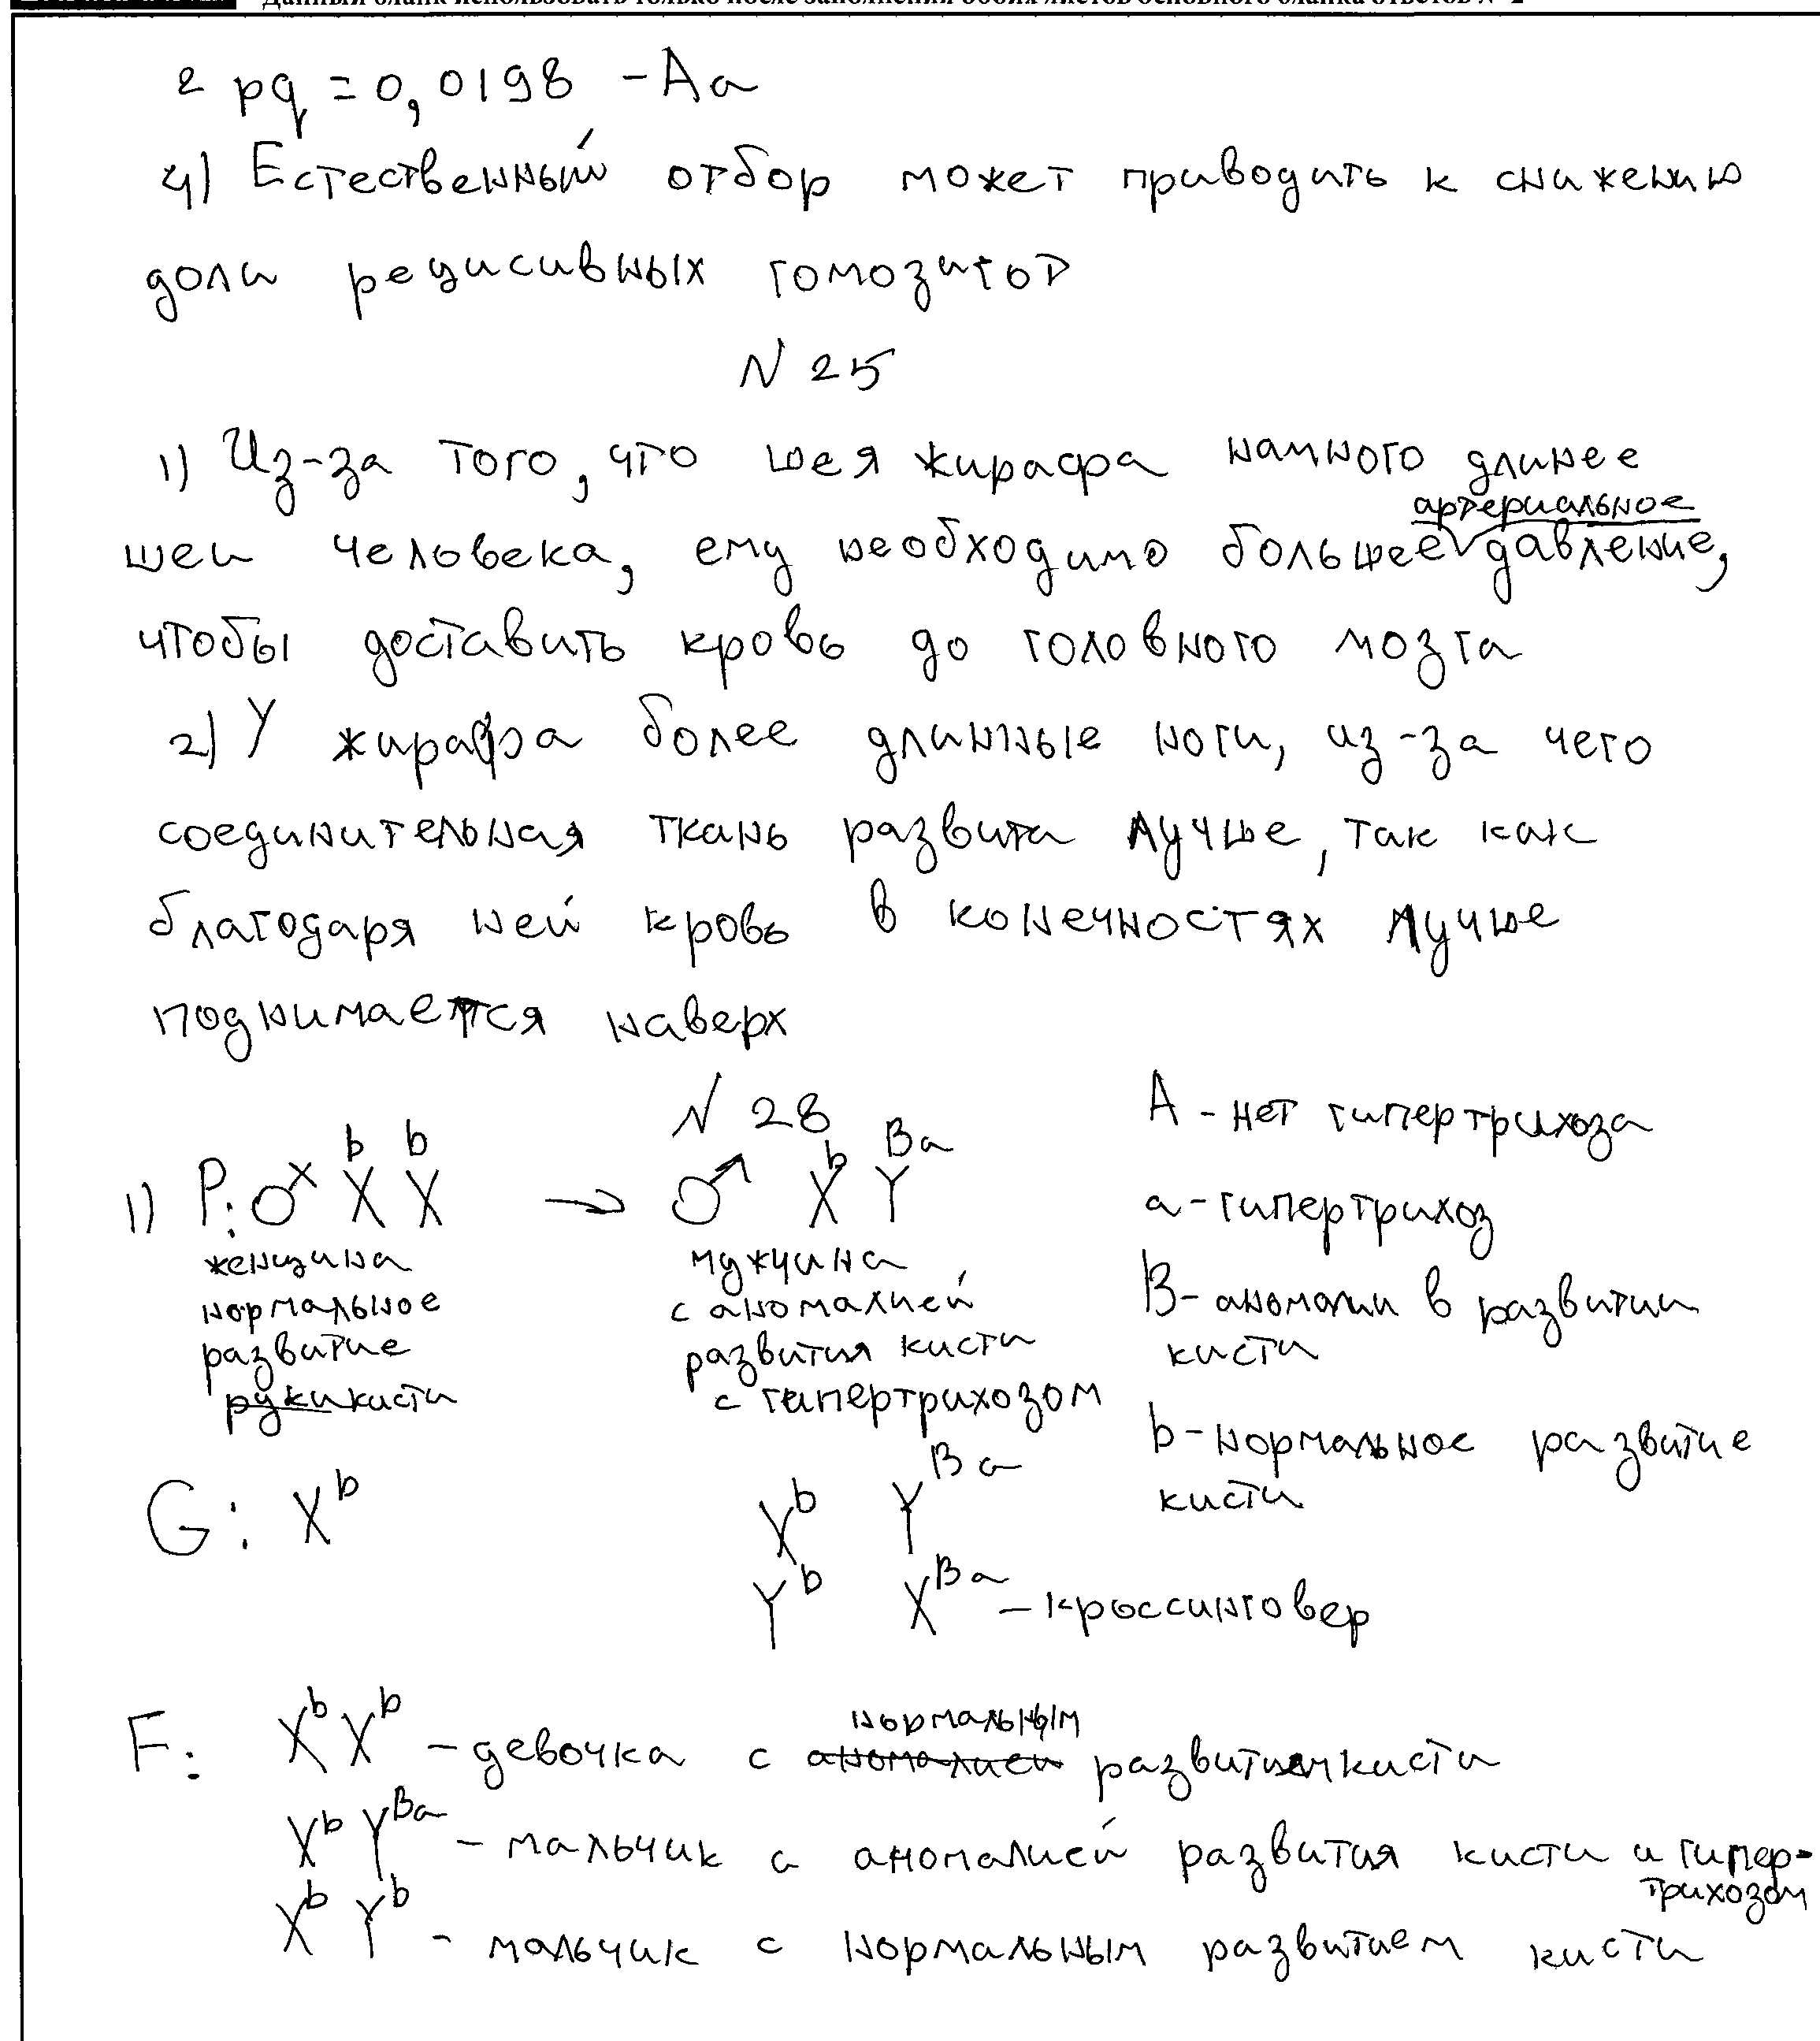 Данный бланк использовать только после заполнения обоих листов основного бланка ответов № 2
2 pq = 0,0198 - Aa
4) Естественный отбор может приводить к снижению
доли рецисивных гомозигот
N 25
1) Из-за того, что шея жирафа намного длинее
артериальное
шеи человека, ему необходимо большее давление,
чтобы доставить кровь до головного мозга
2) У жирафа более длинные ноги, из-за чего
соединительная ткань развита лучше, так как
благодаря ней кровь в конечностях лучше
поднимается наверх
N 28
A - нет гипертрихоза
1) P: ♀ X^b X^b → ♂ X^b Y^Ba
a - гипертрихоз
женщина
нормальное
развитие
руки кисти
мужчина
с аномалией
развития кисти
с гипертрихозом
B - аномалии в развитии
кисти
b - нормальное развитие
кисти
G: X^b
X^b Y^Ba
Y^b X^Ba - кроссинговер
нормальным
F: X^b X^b - девочка с аномалией развитием кисти
X^b Y^Ba - мальчик с аномалией развития кисти и гипер-
трихозом
X^b Y^b - мальчик с нормальным развитием кисти